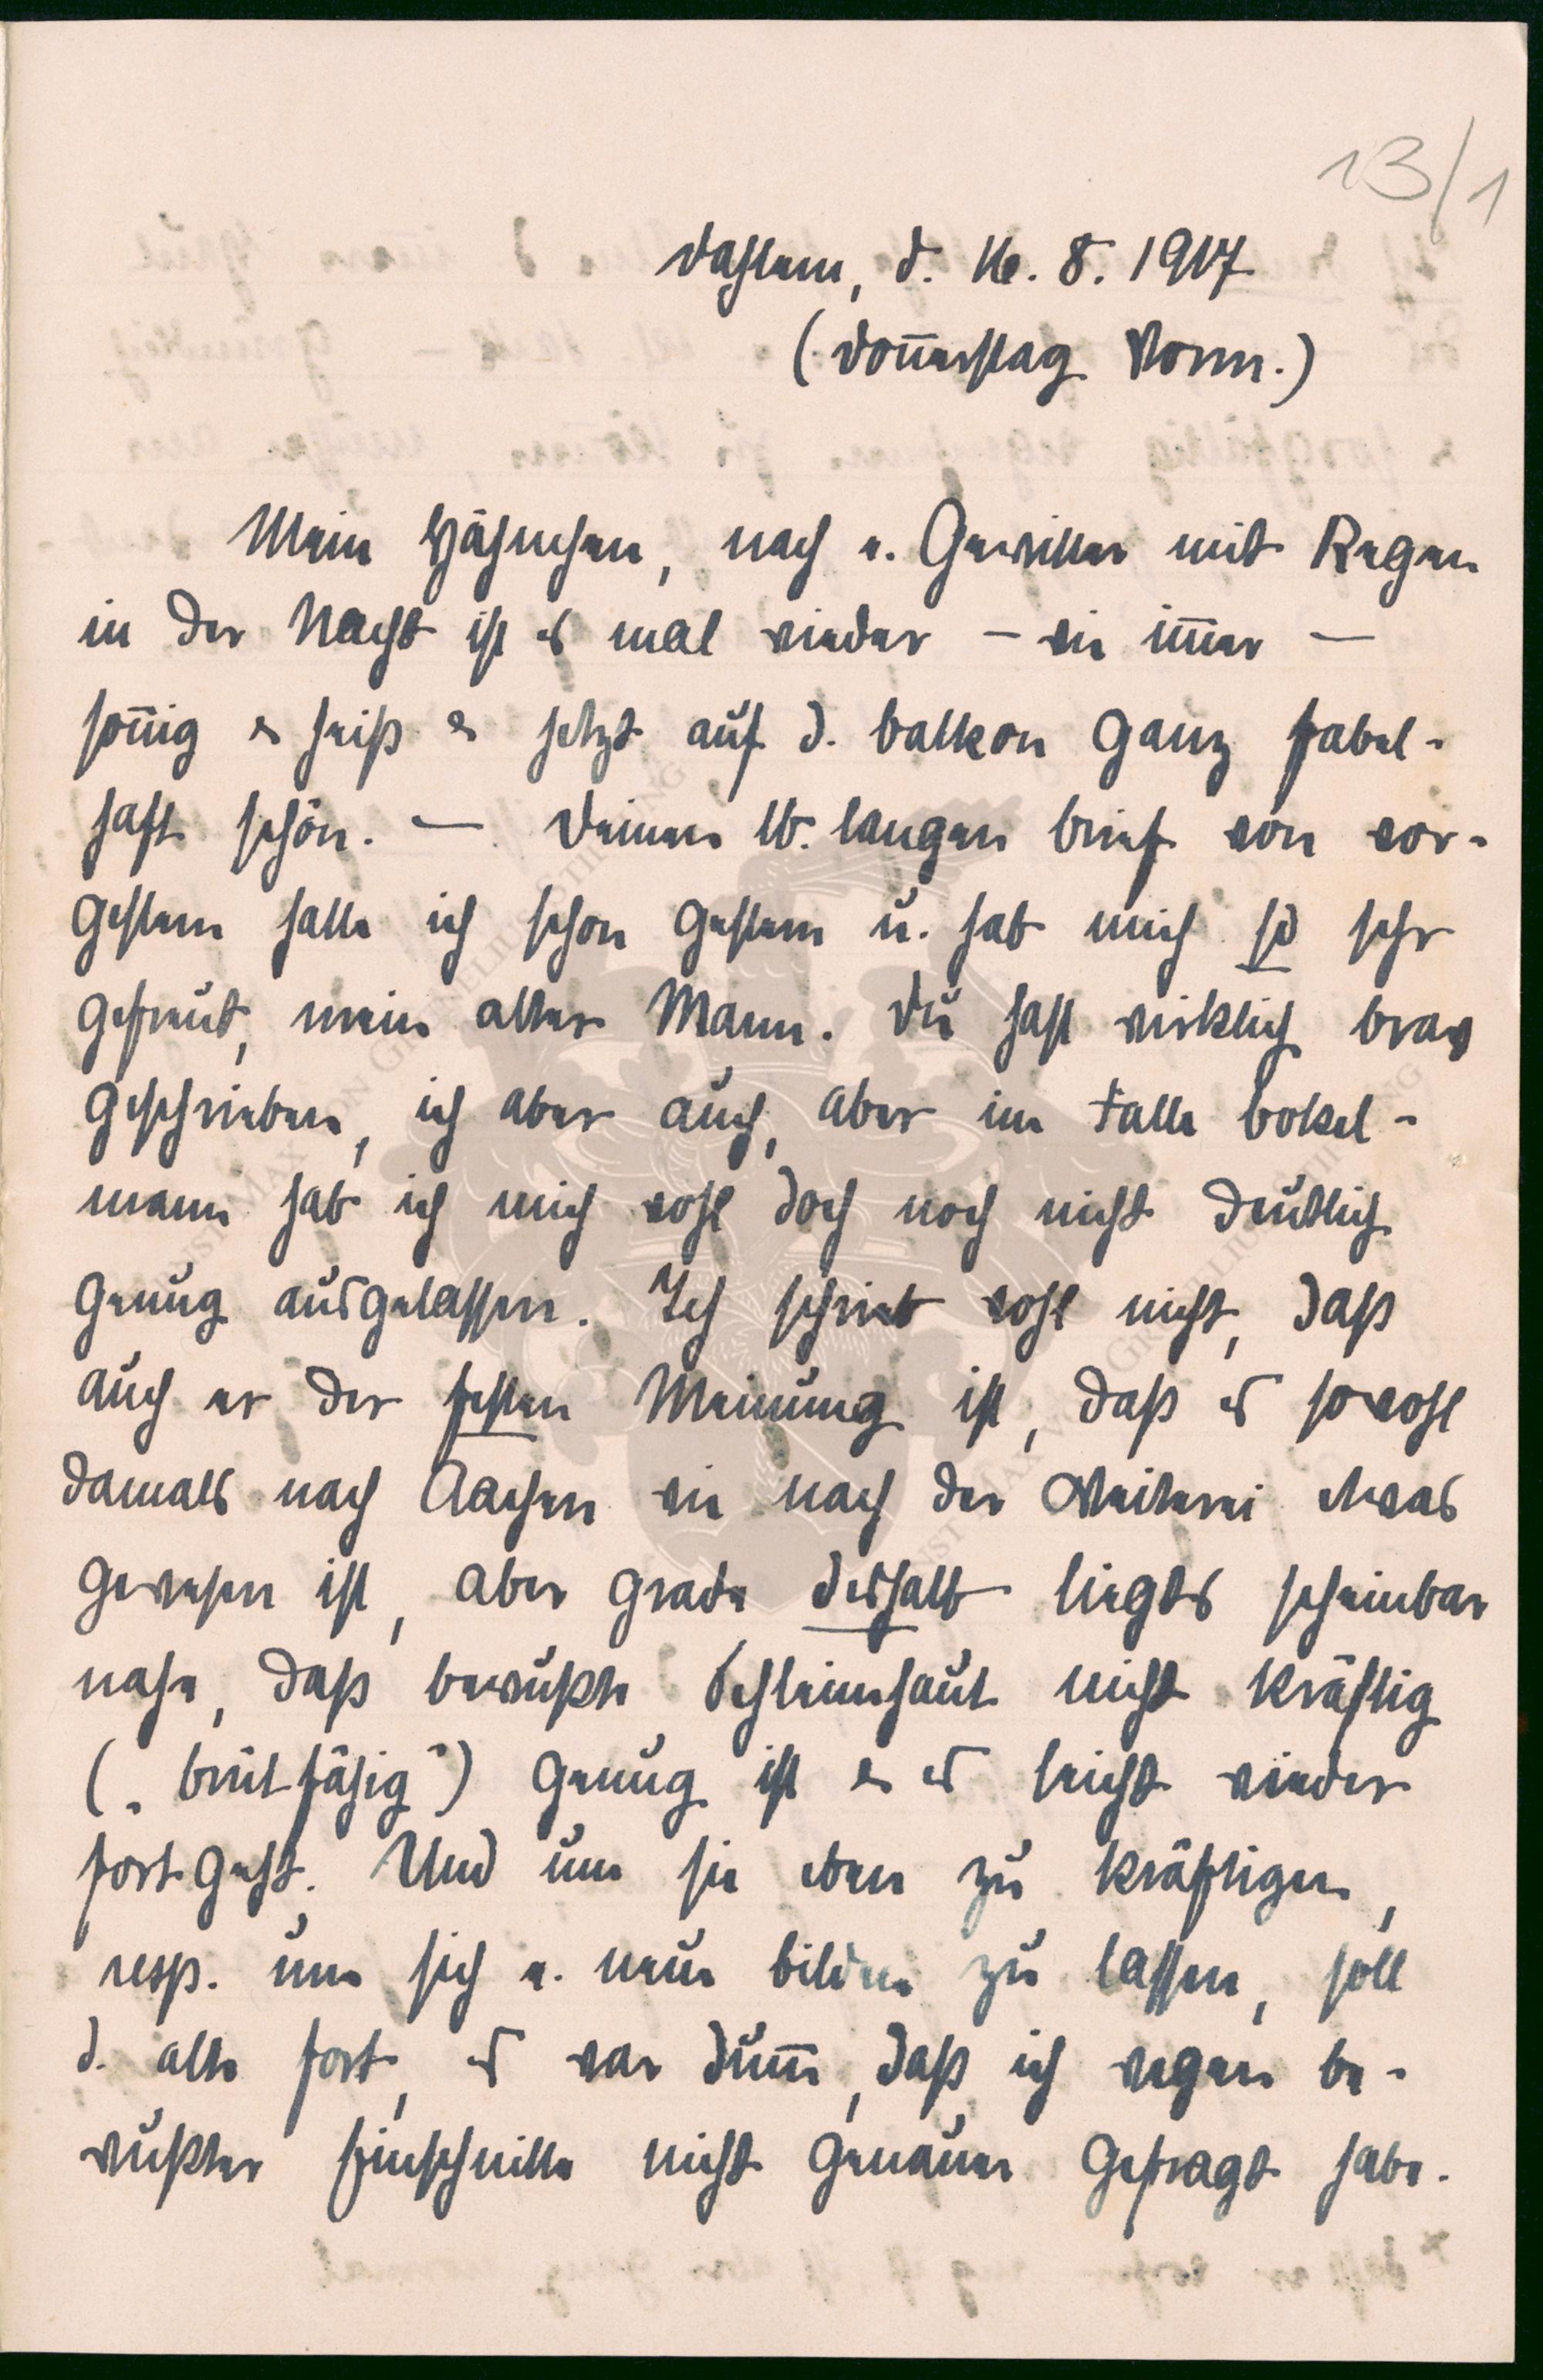 13/1
Dahlem, d. 16. 8. 1917
(Donnerstag Vorm.)
Mein Hähnchen, nach e. Gewitter mit Regen
in der Nacht ist es mal wieder – wie immer –
sonnig & heiß & jetzt auf d. Balkon ganz fabel-
haft schön. – Deinen lb. langen Brief von vor-
gestern hatte ich schon gestern u. hab mich so sehr
gefreut, mein alter Mann. Du hast wirklich brav
geschrieben, ich aber auch, aber im Falle Bokel-
mann hab ich mich wohl doch noch nicht deutlich
genug ausgelassen. Ich schrieb wohl nicht, daß
auch er der festen Meinung ist, daß es sowohl
damals nach Aachen wie nach der etwas
gewesen ist, aber grade deshalb liegts scheinbar
nahe, daß bewußte Schleimhaut nicht kräftig
(„brütfähig“) genug ist & es leicht wieder
fortgeht. Und um sie eben zu kräftigen,
resp. um sich e. neue bilden zu lassen, soll
d. alte fort, es war dumm, daß ich wegen be-
wußter Einschnitte nicht genauer gefragt habe.